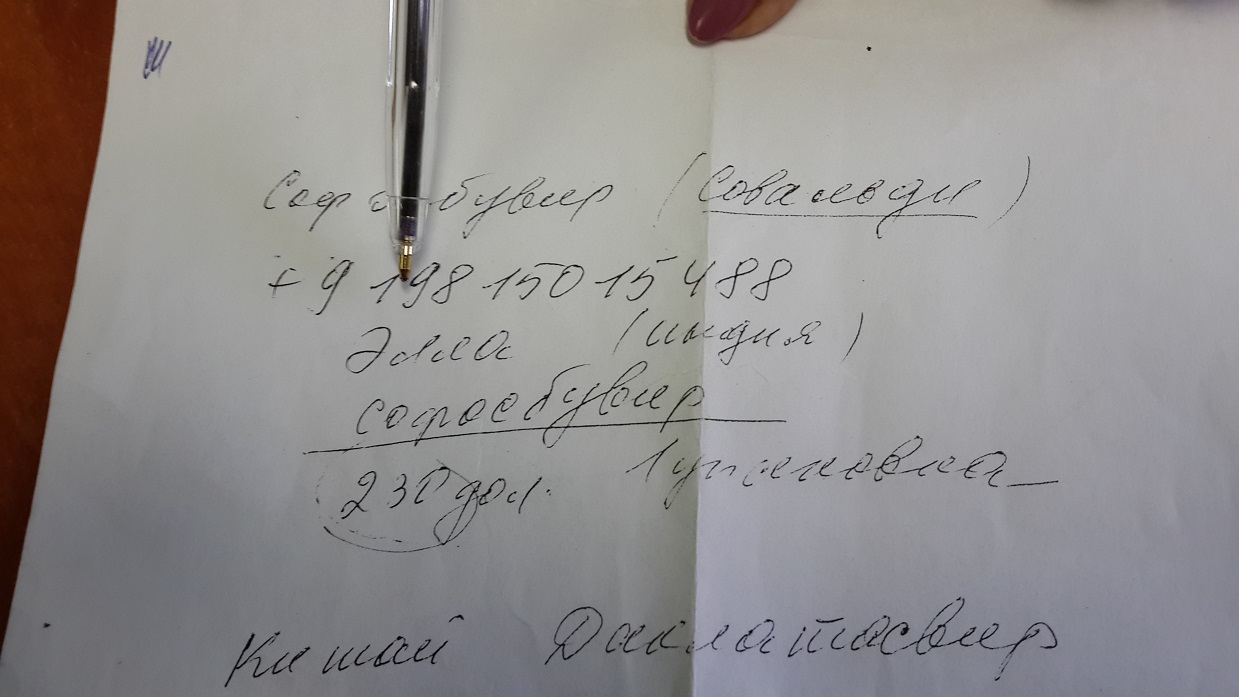 Софосбувир (Совальди)
+9 198 150 15 488
Элла (индия)
софосбувир
230 дол. 1 упаковка
Китай Даклатасвир